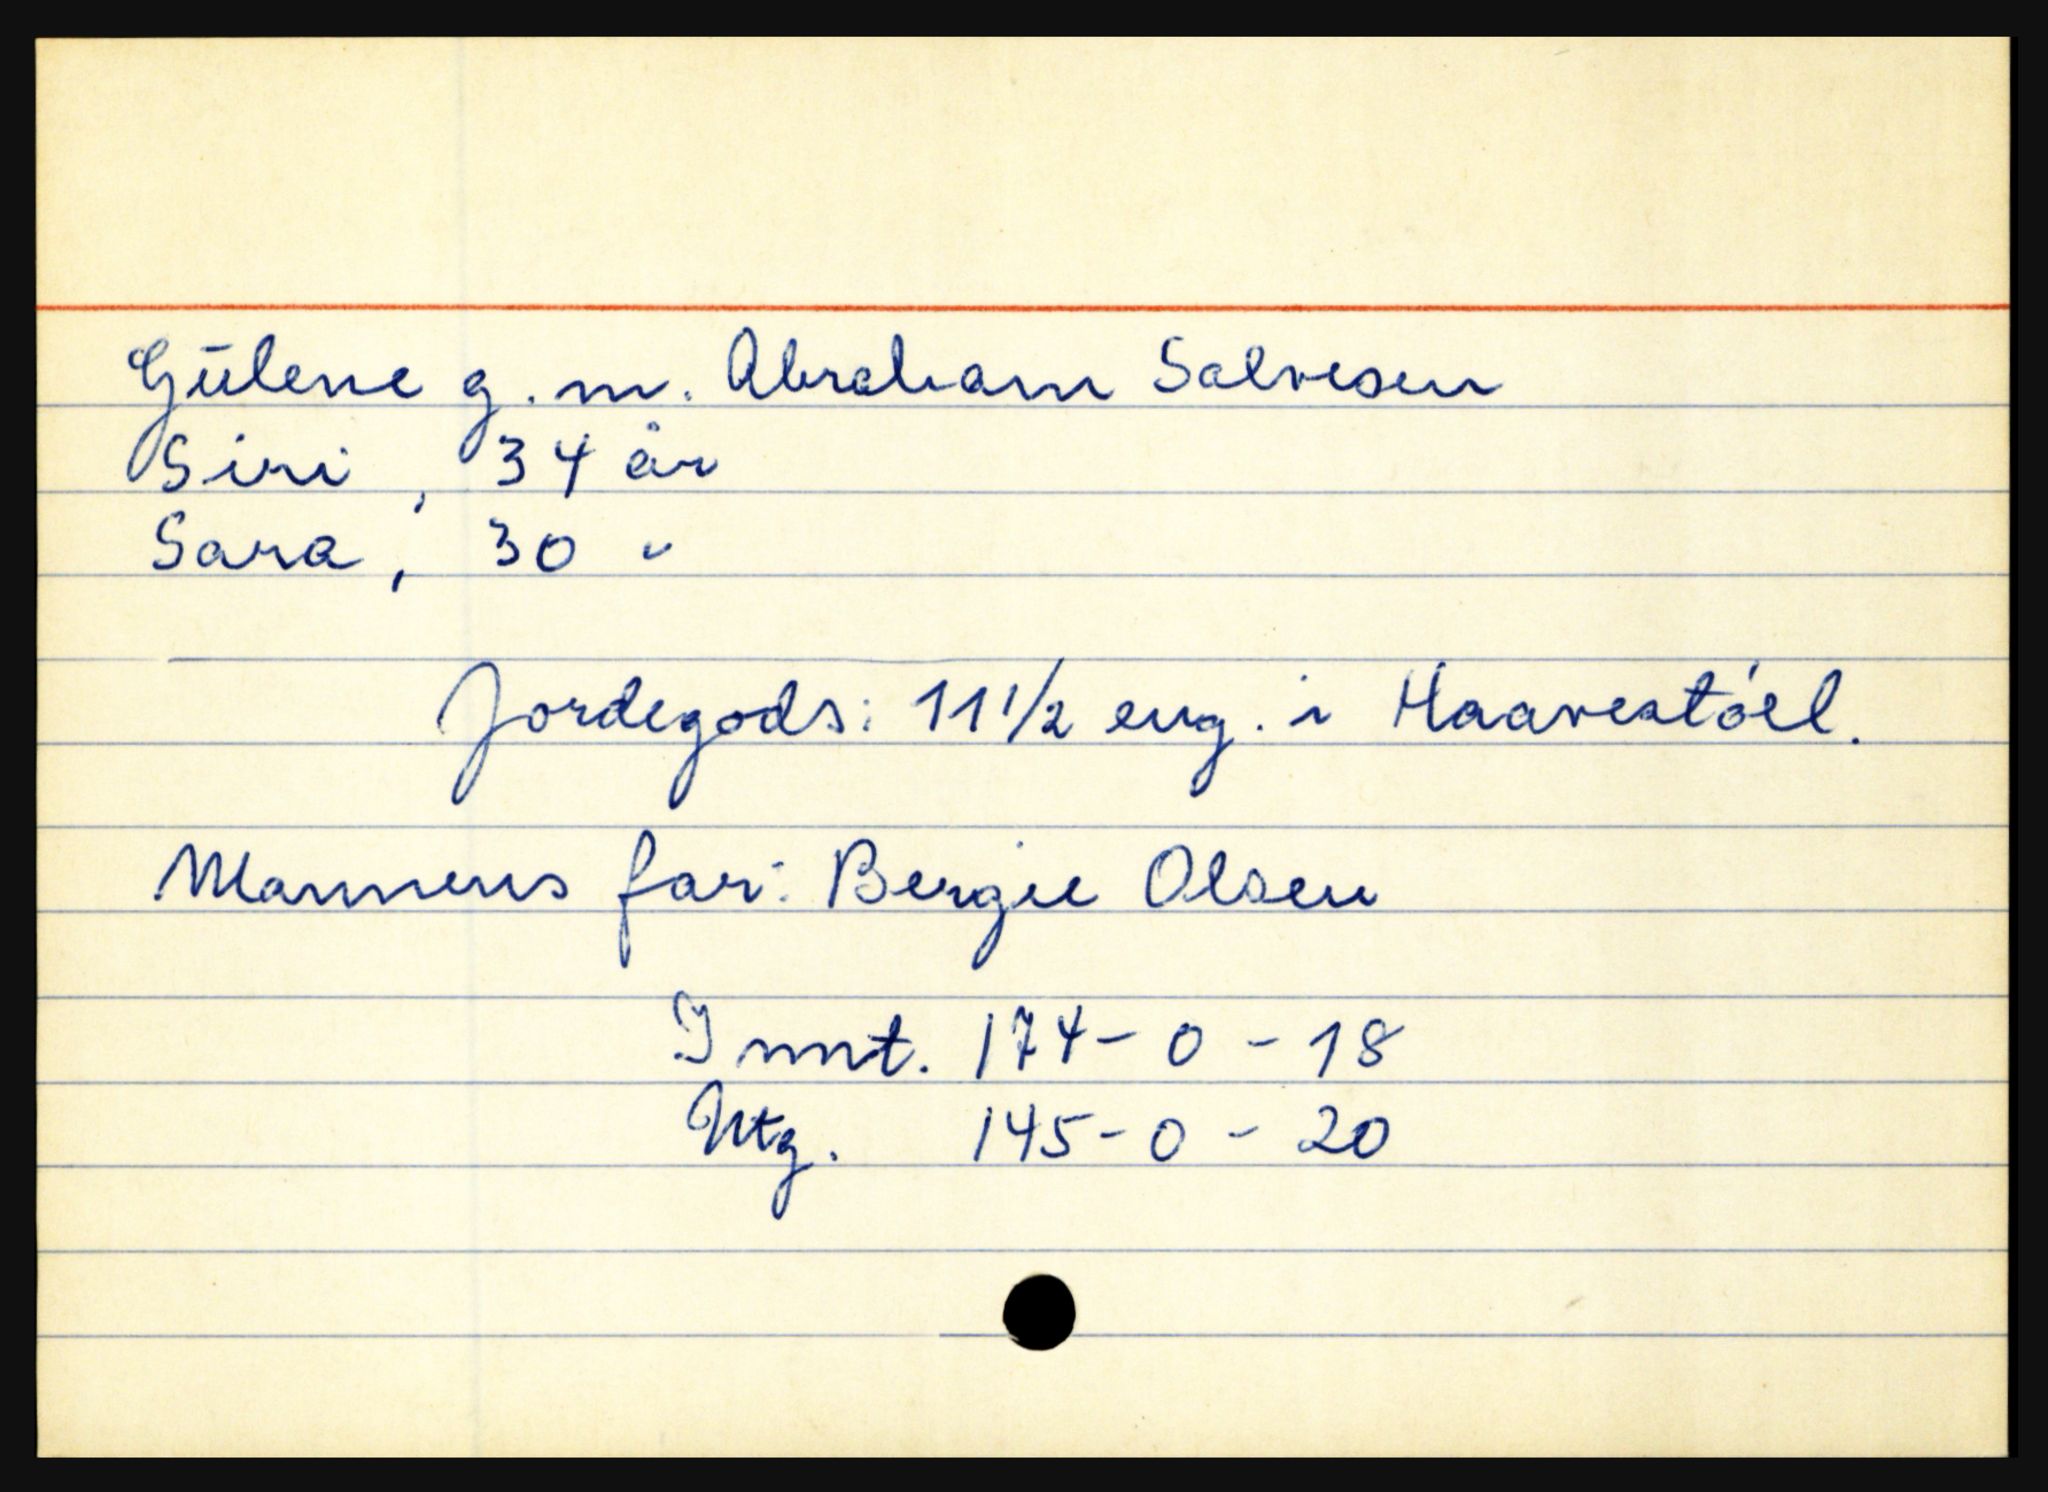 Gülene g. m. Abraham Salvesen
Siri, 34 år
Sara, 30 "
Jordegods: 11 1/2 eng. i Haavestóel.
Mannens far: Bergie Olsen
Innt. 174 - 0 - 18
Utg. 145 - 0 - 20